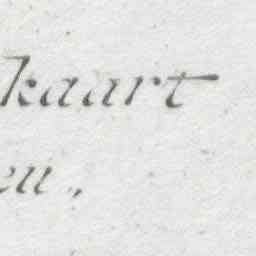 kaart
en,